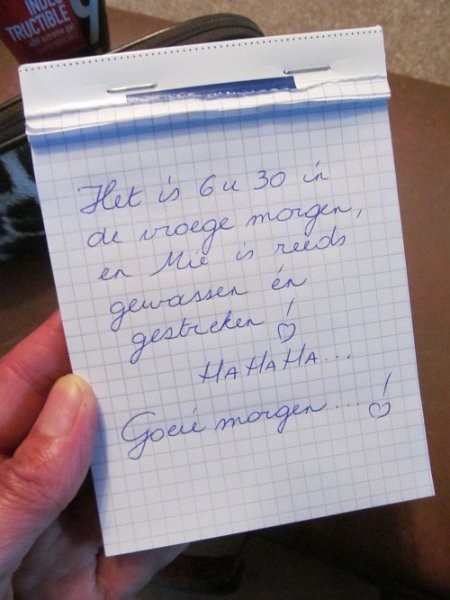 INDES
TRUCTIBLE
9
Het is 6u 30 in
de vroege morgen,
en Mie is reeds
gewassen én
gestreken !
HAHAHA...
Goeie morgen.... !